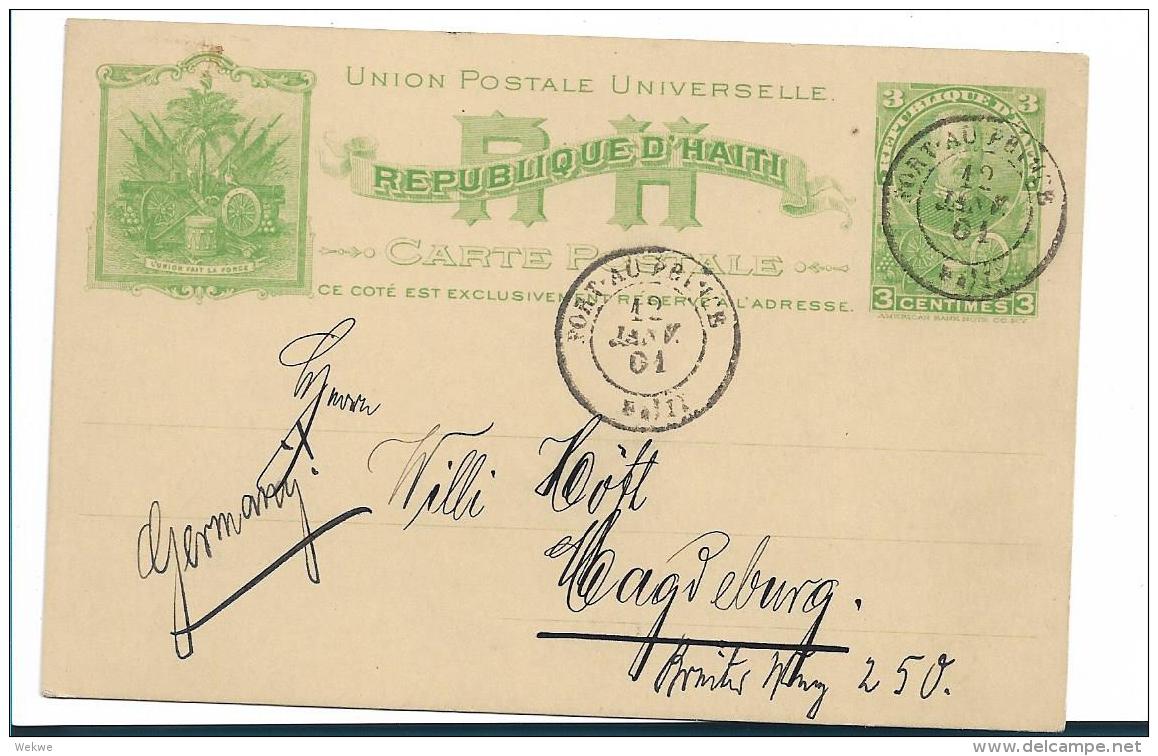 UNION POSTALE UNIVERSELLE.
RH
REPUBLIQUE D'HAITI
CARTE POSTALE
CE COTÉ EST EXCLUSIVEMENT RESERVÉ A L'ADRESSE.
L'UNION FAIT LA FORCE
3 3
REPUBLIQUE D'HAITI
3 CENTIMES 3
AMERICAN BANK NOTE CO. N.Y.
PORT-AU-PRINCE
12
JANV.
01
HAITI
PORT-AU-PRINCE
12
JANV.
01
HAITI
Herrn
Willi Höft
Magdeburg.
Breiter Weg 250.
Germany!
Wekwe
delcampe.net